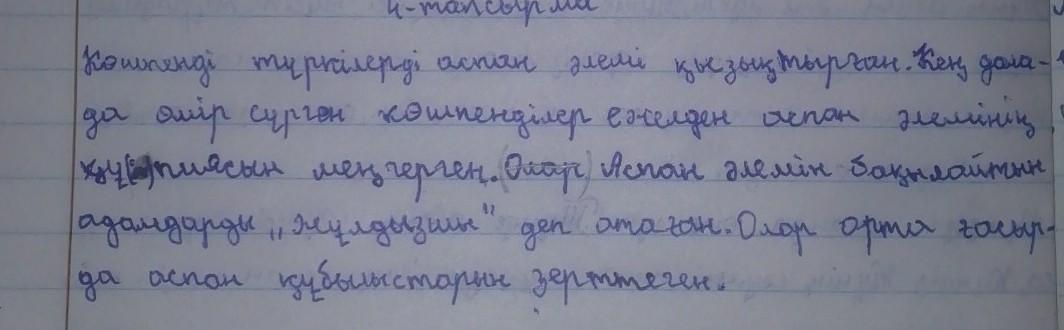 4-тапсырма
Көшпенді түркілерді аспан әлемі қызықтырған. Кең дала-
да өмір сүрген көшпенділер ежелден аспан әлемінің
құпиясын меңгерген. (Олар) Аспан әлемін бақылайтын
адамдарды „жұлдызшы" деп атаған. Олар орта ғасыр-
да аспан құбылыстарын зерттеген.